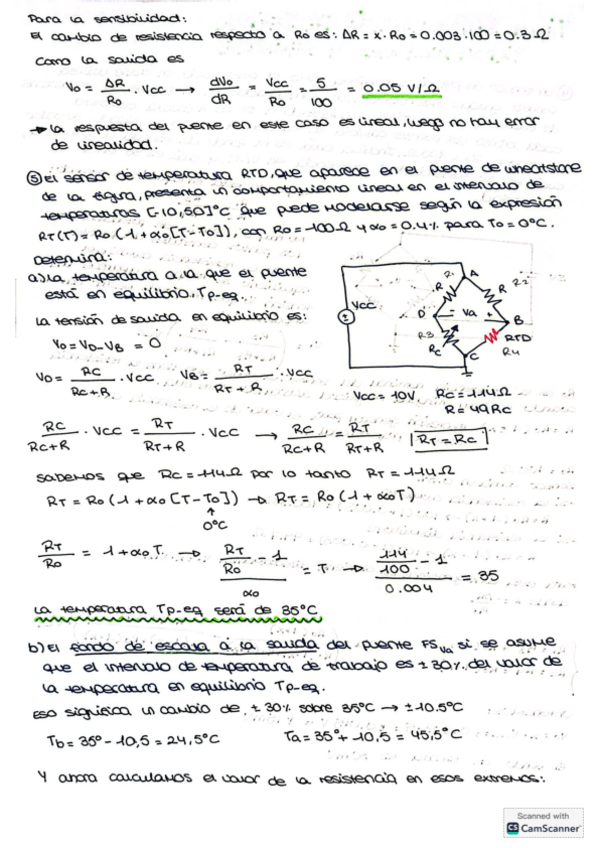 Para la sensibilidad:
El cambio de resistencia respecto a Ro es: ΔR = x·Ro = 0.003·100 = 0.3Ω
Como la salida es
Vo = ΔR/Ro · Vcc → dVo/dR = Vcc/Ro = 5/100 = 0.05 V/Ω
→ La respuesta del puente en este caso es lineal, luego no hay error
de linealidad.
⑤ El sensor de temperatura RTD, que aparece en el puente de wheatstone
de la figura, presenta un comportamiento lineal en el intervalo de
temperaturas [-10,50]°C que puede modelarse según la expresión
RT(T) = Ro(1+αo[T-To]), con Ro=100Ω y αo=0.4% para To=0°C.
Determina:
a) La temperatura a la que el puente
está en equilibrio, Tp-eq.
La tensión de salida en equilibrio es:
Vo = VD - VB = 0
VD = RC/(RC+R) · Vcc VB = RT/(RT+R) · Vcc
Vcc
R1
A
R2
R
R
D
- Va +
B
R3
RC
C
RTD
R4
Vcc = 10V RC = 114Ω
R = 49RC
RC/(RC+R) · Vcc = RT/(RT+R) · Vcc → RC/(RC+R) = RT/(RT+R) RT = RC
Sabemos que RC = 114Ω por lo tanto RT = 114Ω
RT = Ro(1+αo[T-To]) → RT = Ro(1+αoT)
↑
0°C
RT/Ro = 1+αoT → (RT/Ro - 1)/αo = T → (114/100 - 1)/0.004 = 35
La temperatura Tp-eq será de 35°C
b) El fondo de escala a la salida del puente FSVa si se asume
que el intervalo de temperatura de trabajo es ±30% del valor de
la temperatura en equilibrio Tp-eq.
Eso significa un cambio de ±30% sobre 35°C → ±10.5°C
Tb = 35° - 10,5 = 24,5°C Ta = 35° + 10,5 = 45,5°C
Y ahora calculamos el valor de la resistencia en esos extremos:
Scanned with
CS CamScanner